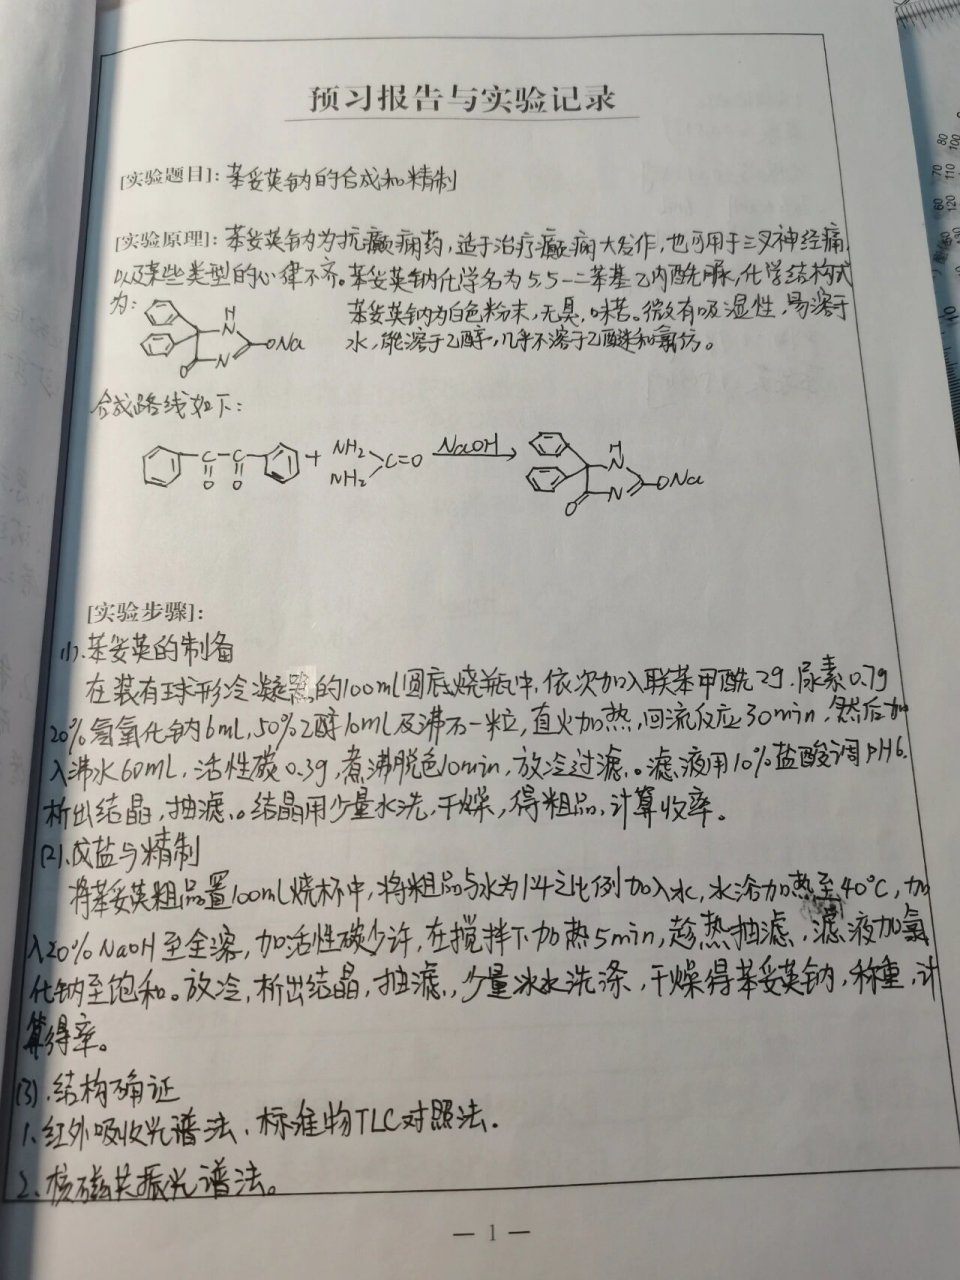 预习报告与实验记录
[实验题目]: 苯妥英钠的合成和精制
[实验原理]: 苯妥英钠为抗癫痫药，适于治疗癫痫大发作，也可用于三叉神经痛，
以及某些类型的心律不齐。苯妥英钠化学名为5,5-二苯基乙内酰脲，化学结构式
为:
苯妥英钠为白色粉末，无臭，味苦。微有吸湿性，易溶于
水，能溶于乙醇，几乎不溶于乙醚和氯仿。
H
N
N
O
ONa
合成路线如下:
C C
O O
+
NH2
NH2
C=O
NaOH
H
N
N
O
ONa
[实验步骤]:
(1).苯妥英的制备
在装有球形冷凝器的100ml圆底烧瓶中，依次加入联苯甲酰2g.尿素0.7g
20%氢氧化钠6mL,50%乙醇10mL及沸石一粒，直火加热，回流反应30min，然后加
入沸水60mL，活性碳0.3g，煮沸脱色10min，放冷过滤。滤液用10%盐酸调PH6.
析出结晶，抽滤。结晶用少量水洗，干燥，得粗品，计算收率。
(2).成盐与精制
将苯妥英粗品置100mL烧杯中，将粗品与水为1:4之比例加入水，水浴加热至40°C，加
入20%NaOH至全溶，加活性碳少许，在搅拌下加热5min，趁热抽滤，滤液加氯
化钠至饱和。放冷，析出结晶，抽滤，少量冰水洗涤，干燥得苯妥英钠，称重，计
算得率。
(3).结构确证
1、红外吸收光谱法、标准物TLC对照法.
2、核磁共振光谱法。
— 1 —